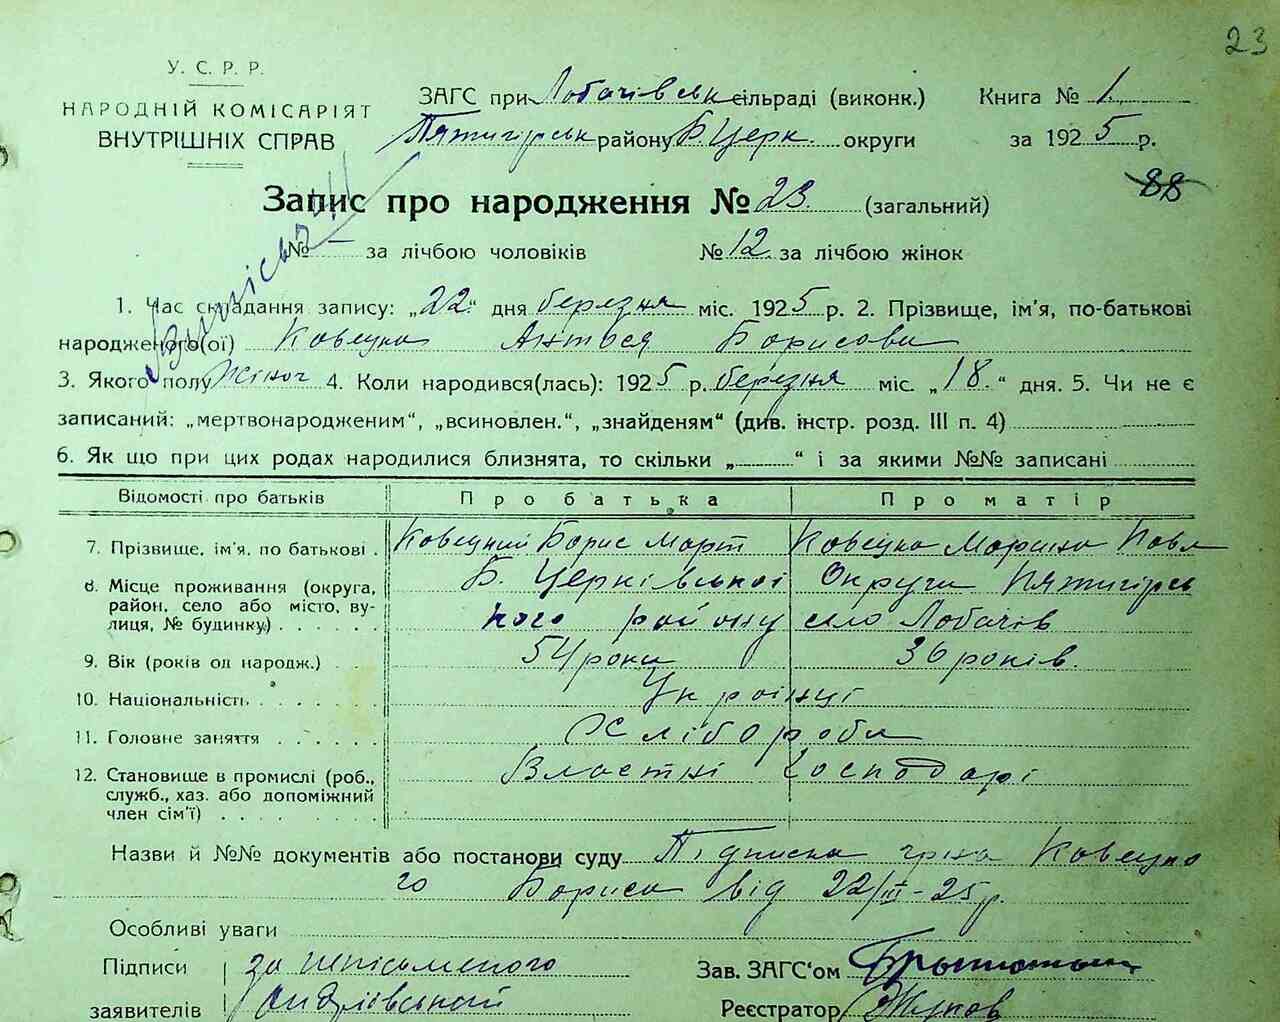 23
У. С. Р. Р.
НАРОДНІЙ КОМІСАРІЯТ
ВНУТРІШНІХ СПРАВ
ЗАГС при Лобачівськ сільраді (виконк.) Книга № 1.
Пятигірськ району Б. Церк. округи за 1925 р.
88
Запис про народження № 23. (загальний)
№ – за лічбою чоловіків № 12 за лічбою жінок
1. Час складання запису: „22“ дня березня міс. 1925 р. 2. Прізвище, ім'я, по-батькові
народженого(ої) Ковецка Борисова
3. Якого полу Жіноч 4. Коли народився(лась): 1925 р. березня міс. „18.“ дня. 5. Чи не є
записаний: „мертвонародженим“, „всиновлен.“, „знайденям“ (див. інстр. розд. III п. 4)
6. Як що при цих родах народилися близнята, то скільки „ “ і за якими №№ записані
Відомості про батьків Про батька Про матір
7. Прізвище, ім'я, по батькові. Ковецкий Борис Март Ковецка Марина Павл
8. Місце проживання (округа, Б. Церківської Округи Пятигірсь
район, село або місто, ву-
лиця, № будинку) кого району село Лобачів
9. Вік (років од народж.) 54 роки 36 років.
10. Національність Українці
11. Головне заняття Хлібороби
12. Становище в промислі (роб., Властні Господарі
служб., хаз. або допоміжний
член сім'ї)
Назви й №№ документів або постанови суду Підписка гр-на Ковецко
го Бориса від 22/III-25 р.
Особливі уваги
Підписи за неписьменого Зав. ЗАГС'ом
заявителів Реєстратор Жуков